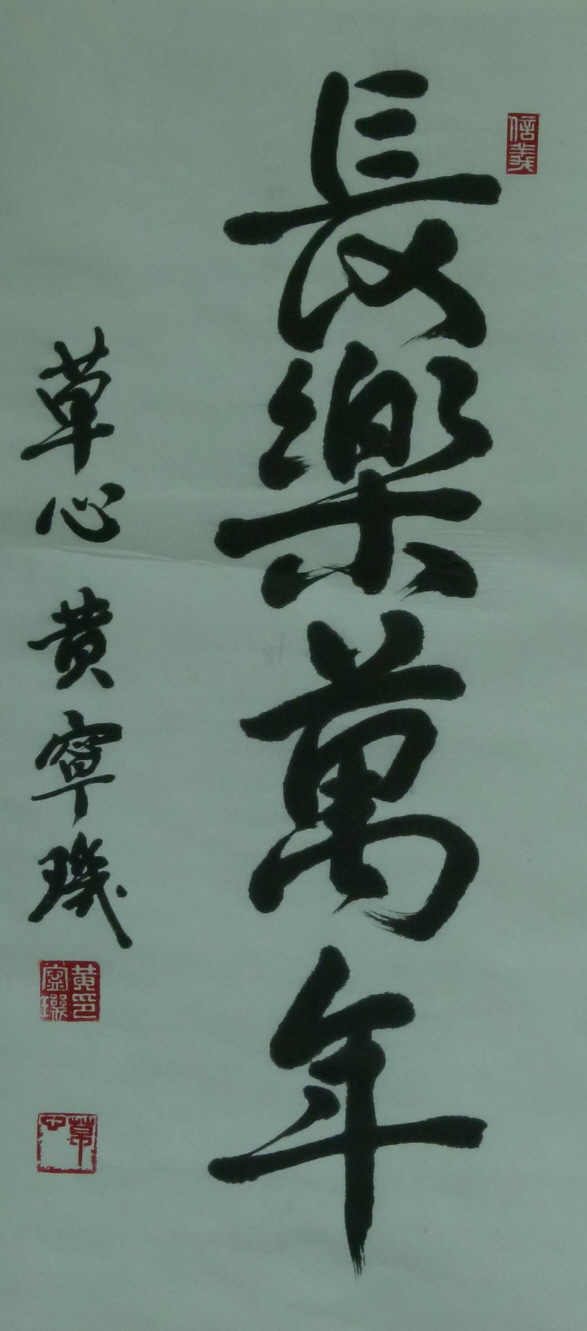 信義
長樂萬年
草心 黄寧璣
黄寧璣印
草心